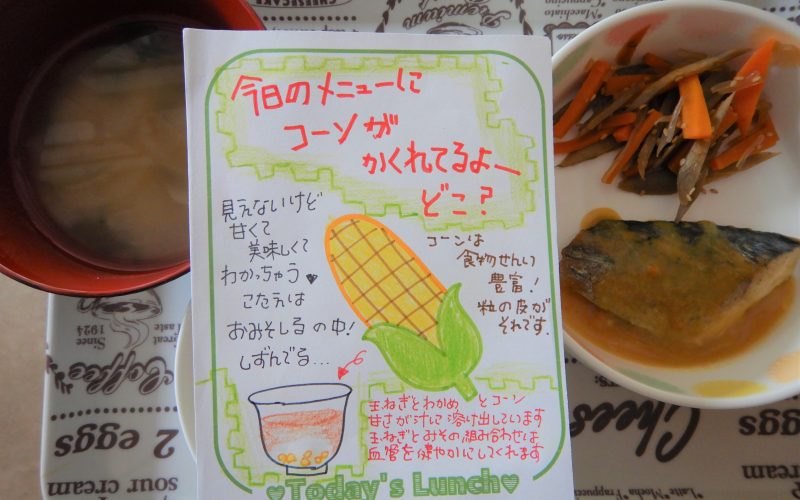 今日のメニューに
コーソが
かくれてるよー
どこ?
見えないけど
甘くて
美味しくて
わかっちゃう♥
こたえは
おみそしるの中!
しずんでる...
コーンは
食物せんい
豊富!
粒の皮が
それです.
玉ねぎとわかめ とコーン
甘さが汁にて溶け出しています
玉ねぎとみその組み合わせは
血管を健やかにしてくれます
♥Today's Lunch♥
CHEESECAKE
Macchiato
Since
1924
Coffee
2 eggs
sour cream
Chees
Latte Mocha Frappucc